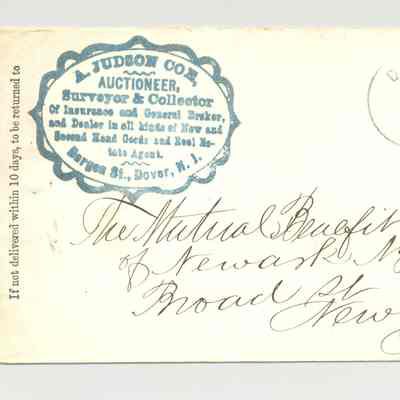 If not delivered within 10 days, to be returned to
A. JUDSON COE,
AUCTIONEER,
Surveyor & Collector
Of Insurance and General Broker,
and Dealer in all kinds of New and
Second Hand Goods and Real Es-
tate Agent.
Bergen St., Dover, N. J.
The Mutual Benefit
of Newark N
Broad St
New